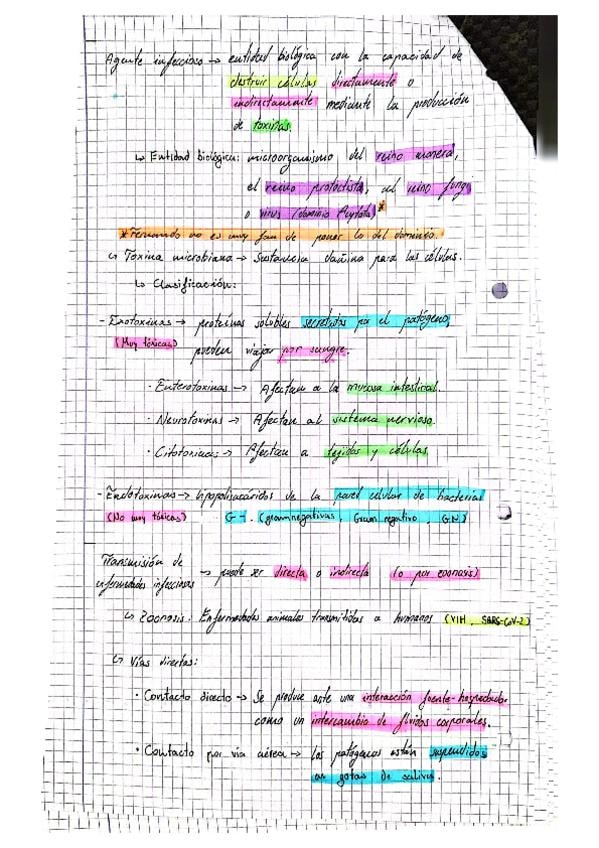 Agente infeccioso → entidad biológica con la capacidad de
destruir células directamente o
indirectamente mediante la producción
de toxinas.
↳ Entidad biológica: microorganismo del reino monera,
el reino protoctista, del reino fungi
o virus (dominio Acytota)*
*Fernando no es muy fan de poner lo del dominio.
↳ Toxina microbiana → Sustancia dañina para las células.
↳ Clasificación:
- Exotoxinas → proteínas solubles secretadas por el patógeno,
(Muy tóxicas) pueden viajar por sangre.
· Enterotoxinas → Afectan a la mucosa intestinal.
· Neurotoxinas → Afectan al sistema nervioso.
· Citotoxinas → Afectan a tejidos y células
- Endotoxinas → lipopolisacáridos de la pared celular de bacterias
(No muy tóxicas) G-. (gramnegativas, Gram negativo, GN)
Transmisión de
enfermedades infecciosas → puede ser directa o indirecta (o por zoonosis)
↳ Zoonosis: Enfermedades animales transmitidas a humanos (VIH, SARS-CoV-2)
↳ Vías directas:
· Contacto directo → Se produce ante una interacción fuente-hospedador
como un intercambio de fluidos corporales.
· Contacto por vía aérea → los patógenos están suspendidos
en gotas de saliva.